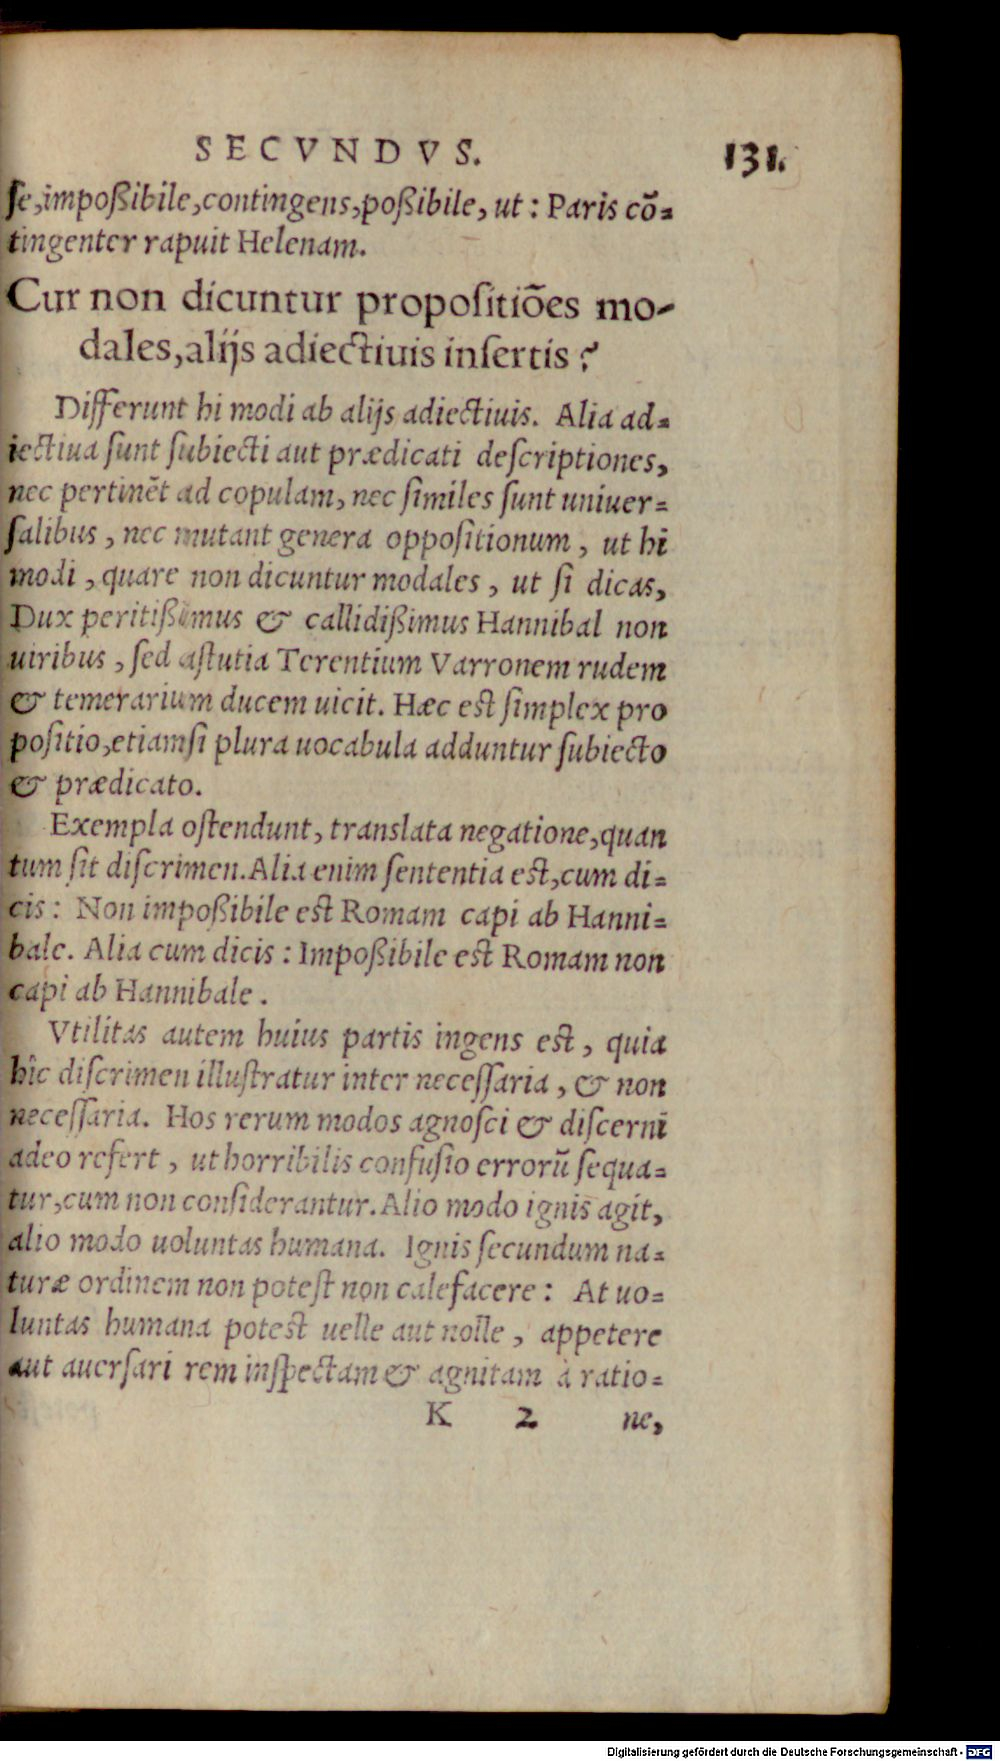 SECVNDVS. 131.
ſe,impoßibile,contingens,poßibile, ut: Paris cō=
tingenter rapuit Helenam.
Cur non dicuntur propositiōes mo-
dales,alijs adiectiuis insertis?
Differunt hi modi ab alijs adiectiuis. Alia ad=
iectiua ſunt ſubiecti aut prædicati deſcriptiones,
nec pertinēt ad copulam, nec ſimiles ſunt uniuer=
ſalibus, nec mutant genera oppoſitionum, ut hi
modi, quare non dicuntur modales, ut ſi dicas,
Dux peritißimus & callidißimus Hannibal non
uiribus, ſed aſtutia Terentium Varronem rudem
& temerarium ducem uicit. Hæc eſt ſimplex pro
poſitio,etiamſi plura uocabula adduntur ſubiecto
& prædicato.
Exempla oſtendunt, translata negatione,quan
tum ſit diſcrimen.Alia enim ſententia eſt,cum di=
cis: Non impoßibile eſt Romam capi ab Hanni=
bale. Alia cum dicis: Impoßibile eſt Romam non
capi ab Hannibale.
Vtilitas autem huius partis ingens eſt, quia
hîc diſcrimen illuſtratur inter neceſſaria, & non
neceſſaria. Hos rerum modos agnoſci & diſcerni
adeo refert, ut horribilis confuſio errorū ſequa=
tur,cum non conſiderantur.Alio modo ignis agit,
alio modo uoluntas humana. Ignis ſecundum na=
turæ ordinem non poteſt non calefacere: At uo=
luntas humana poteſt uelle aut nolle, appetere
aut auerſari rem inſpectam & agnitam à ratio=
K 2 ne,
Digitalisierung gefördert durch die Deutsche Forschungsgemeinschaft - DFG